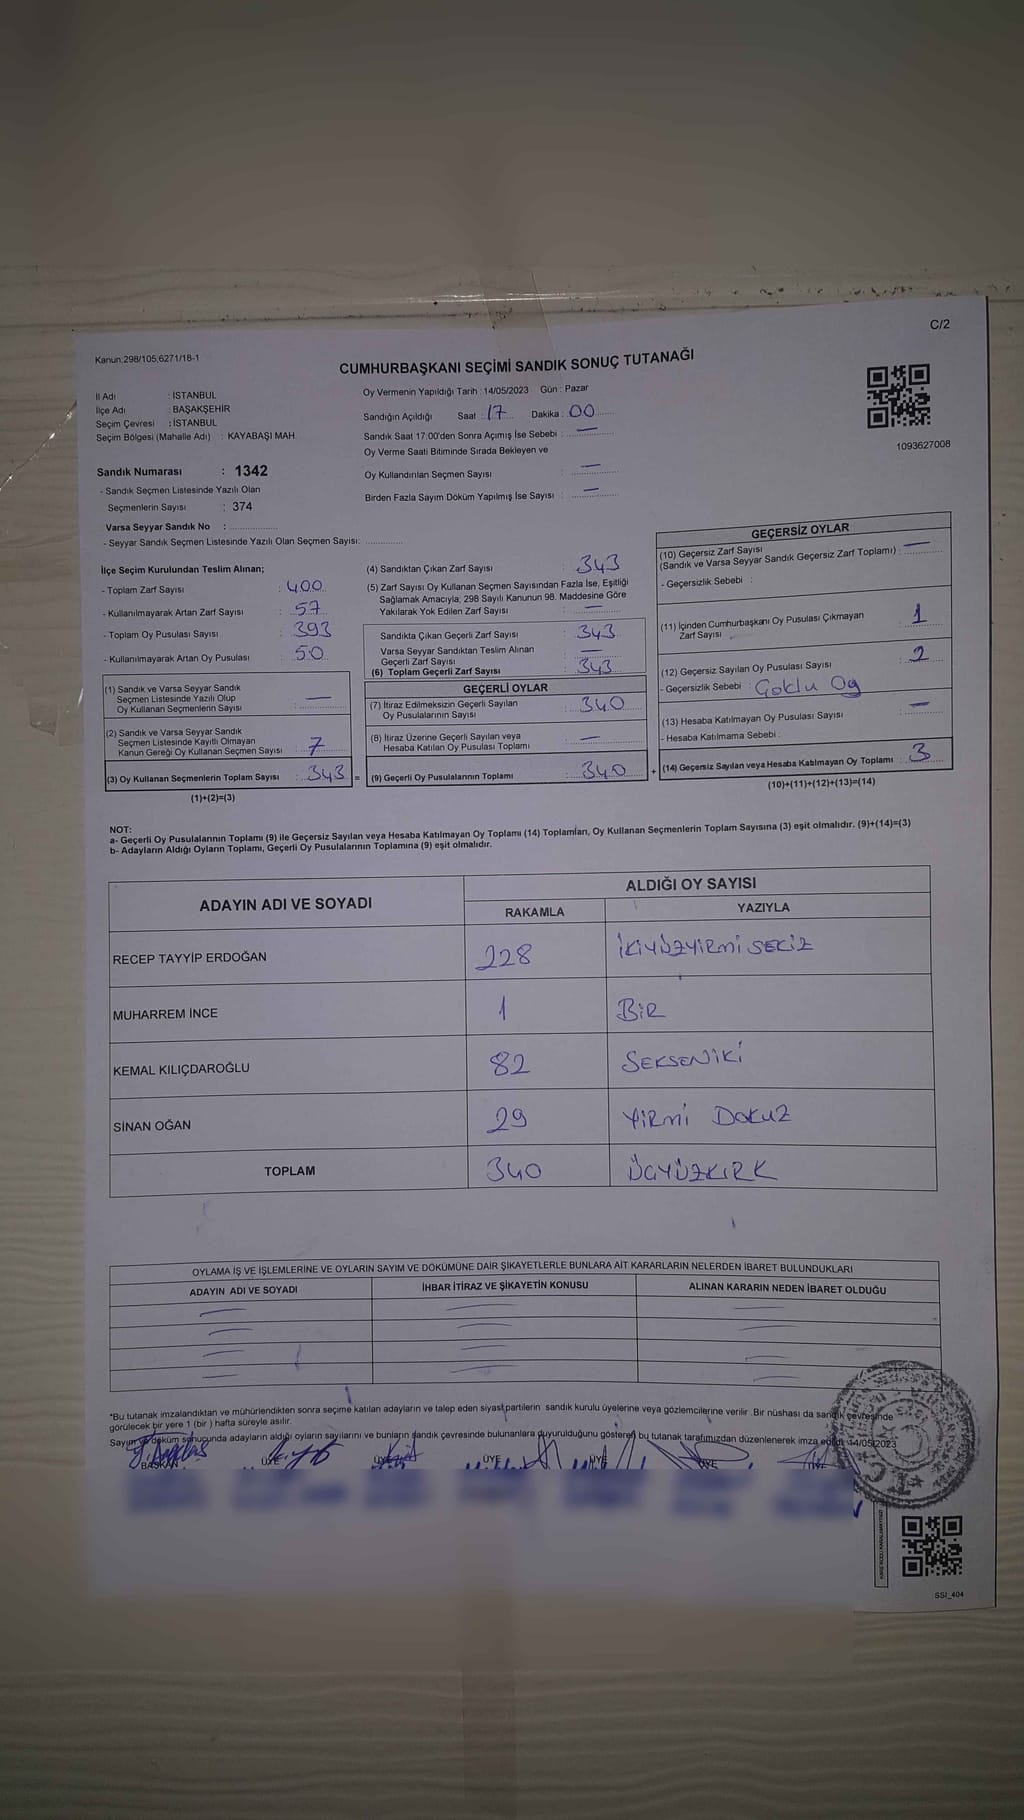 C/2
Kanun:298/105;6271/18-1
CUMHURBAŞKANI SEÇİMİ SANDIK SONUÇ TUTANAĞI
İl Adı : İSTANBUL
İlçe Adı : BAŞAKŞEHİR
Seçim Çevresi : İSTANBUL
Seçim Bölgesi (Mahalle Adı) : KAYABAŞI MAH.
Sandık Numarası : 1342
- Sandık Seçmen Listesinde Yazılı Olan
Seçmenlerin Sayısı : 374
Varsa Seyyar Sandık No :
- Seyyar Sandık Seçmen Listesinde Yazılı Olan Seçmen Sayısı:
Oy Vermenin Yapıldığı Tarih : 14/05/2023 Gün : Pazar
Sandığın Açıldığı Saat : 17 Dakika : 00
Sandık Saat 17:00'den Sonra Açımış İse Sebebi : —
Oy Verme Saati Bitiminde Sırada Bekleyen ve
Oy Kullandırılan Seçmen Sayısı : —
Birden Fazla Sayım Döküm Yapılmış İse Sayısı : —
1093627008
İlçe Seçim Kurulundan Teslim Alınan;
- Toplam Zarf Sayısı : 400
- Kullanılmayarak Artan Zarf Sayısı : 57
- Toplam Oy Pusulası Sayısı : 393
- Kullanılmayarak Artan Oy Pusulası : 50
(1) Sandık ve Varsa Seyyar Sandık
Seçmen Listesinde Yazılı Olup
Oy Kullanan Seçmenlerin Sayısı : —
(2) Sandık ve Varsa Seyyar Sandık
Seçmen Listesinde Kayıtlı Olmayan
Kanun Gereği Oy Kullanan Seçmen Sayısı : 7
(3) Oy Kullanan Seçmenlerin Toplam Sayısı : 343 =
(1)+(2)=(3)
(4) Sandıktan Çıkan Zarf Sayısı : 343
(5) Zarf Sayısı Oy Kullanan Seçmen Sayısından Fazla İse, Eşitliği
Sağlamak Amacıyla; 298 Sayılı Kanunun 98. Maddesine Göre
Yakılarak Yok Edilen Zarf Sayısı : —
Sandıkta Çıkan Geçerli Zarf Sayısı : 343
Varsa Seyyar Sandıktan Teslim Alınan
Geçerli Zarf Sayısı : —
(6) Toplam Geçerli Zarf Sayısı : 343
GEÇERLİ OYLAR
(7) İtiraz Edilmeksizin Geçerli Sayılan
Oy Pusulalarının Sayısı : 340
(8) İtiraz Üzerine Geçerli Sayılan veya
Hesaba Katılan Oy Pusulası Toplamı : —
(9) Geçerli Oy Pusulalarının Toplamı : 340 +
GEÇERSİZ OYLAR
(10) Geçersiz Zarf Sayısı
(Sandık ve Varsa Seyyar Sandık Geçersiz Zarf Toplamı) : —
- Geçersizlik Sebebi :
(11) İçinden Cumhurbaşkanı Oy Pusulası Çıkmayan
Zarf Sayısı : 1
(12) Geçersiz Sayılan Oy Pusulası Sayısı : 2
- Geçersizlik Sebebi : Çoklu Oy
(13) Hesaba Katılmayan Oy Pusulası Sayısı : —
- Hesaba Katılmama Sebebi :
(14) Geçersiz Sayılan veya Hesaba Katılmayan Oy Toplamı : 3
(10)+(11)+(12)+(13)=(14)
NOT:
a- Geçerli Oy Pusulalarının Toplamı (9) ile Geçersiz Sayılan veya Hesaba Katılmayan Oy Toplamı (14) Toplamları, Oy Kullanan Seçmenlerin Toplam Sayısına (3) eşit olmalıdır. (9)+(14)=(3)
b- Adayların Aldığı Oyların Toplamı, Geçerli Oy Pusulalarının Toplamına (9) eşit olmalıdır.
ADAYIN ADI VE SOYADI ALDIĞI OY SAYISI
RAKAMLA YAZIYLA
RECEP TAYYİP ERDOĞAN 228 İKİYÜZYİRMİ SEKİZ
MUHARREM İNCE 1 BİR
KEMAL KILIÇDAROĞLU 82 SEKSENİKİ
SİNAN OĞAN 29 YİRMİ DOKUZ
TOPLAM 340 ÜÇYÜZKIRK
OYLAMA İŞ VE İŞLEMLERİNE VE OYLARIN SAYIM VE DÖKÜMÜNE DAİR ŞİKAYETLERLE BUNLARA AİT KARARLARIN NELERDEN İBARET BULUNDUKLARI
ADAYIN ADI VE SOYADI İHBAR İTİRAZ VE ŞİKAYETİN KONUSU ALINAN KARARIN NEDEN İBARET OLDUĞU
*Bu tutanak imzalandıktan ve mühürlendikten sonra seçime katılan adayların ve talep eden siyasi partilerin sandık kurulu üyelerine veya gözlemcilerine verilir. Bir nüshası da sandık çevresinde
görülecek bir yere 1 (bir ) hafta süreyle asılır.
Sayım ve döküm sonucunda adayların aldığı oyların sayılarını ve bunların sandık çevresinde bulunanlara duyurulduğunu gösteren bu tutanak tarafımızdan düzenlenerek imza edildi. 14/05/2023
BAŞKAN ÜYE ÜYE ÜYE ÜYE ÜYE ÜYE
SSİ_404